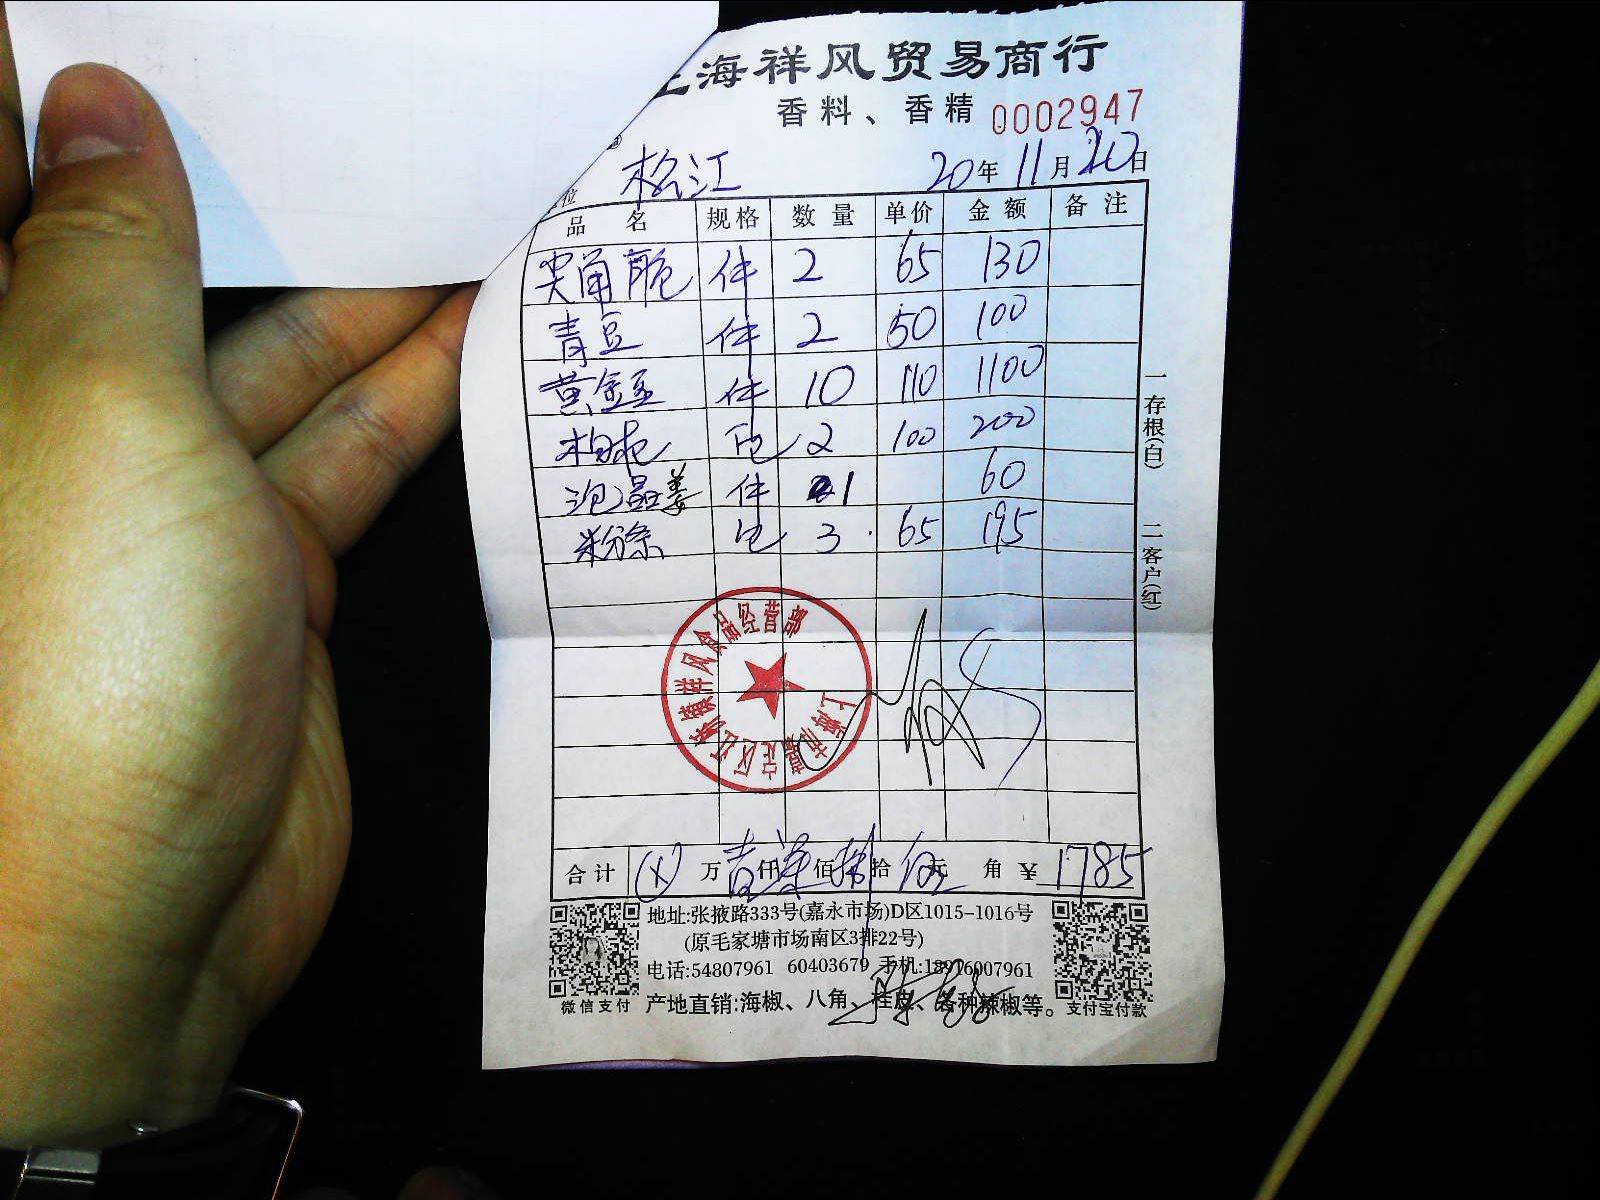 上海祥风贸易商行
香料、香精 0002947
位 松江 20年 11月 20日
品名 规格 数量 单价 金额 备注
尖角脆 件 2 65 130
青豆 件 2 50 100
黄金豆 件 10 110 1100
包 2 100 200
泡晶姜 件 1 60
粉条 包 3 65 195
一存根(白)
二客户(红)
上海市嘉定区江桥镇祥风食品经营部
合计 (X) 万 壹仟 柒佰 捌拾 伍元 角 ¥ 1785
地址:张掖路333号(嘉永市场)D区1015-1016号
(原毛家塘市场南区3排22号)
电话:54807961 60403679 手机:18916007961
产地直销:海椒、八角、桂皮、各种辣椒等。
微信支付
支付宝付款